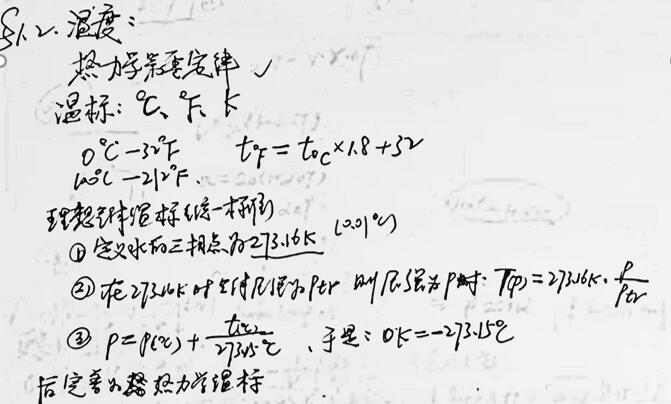 §1.2. 温度:
热力学第零定律 ✓
温标: ℃、℉、K
0℃—32℉ t℉ = t℃×1.8+32
100℃—212℉.
理想气体温标(统一标度)
① 定义水的三相点为273.16K (0.01℃)
② 在273.16K时气体压强为Ptr 则压强为P时: T(p)=273.16K·P/Ptr
③ P=P(℃)+t(℃)/273.15℃ 、于是: 0K=-273.15℃
后完善为热力学温标